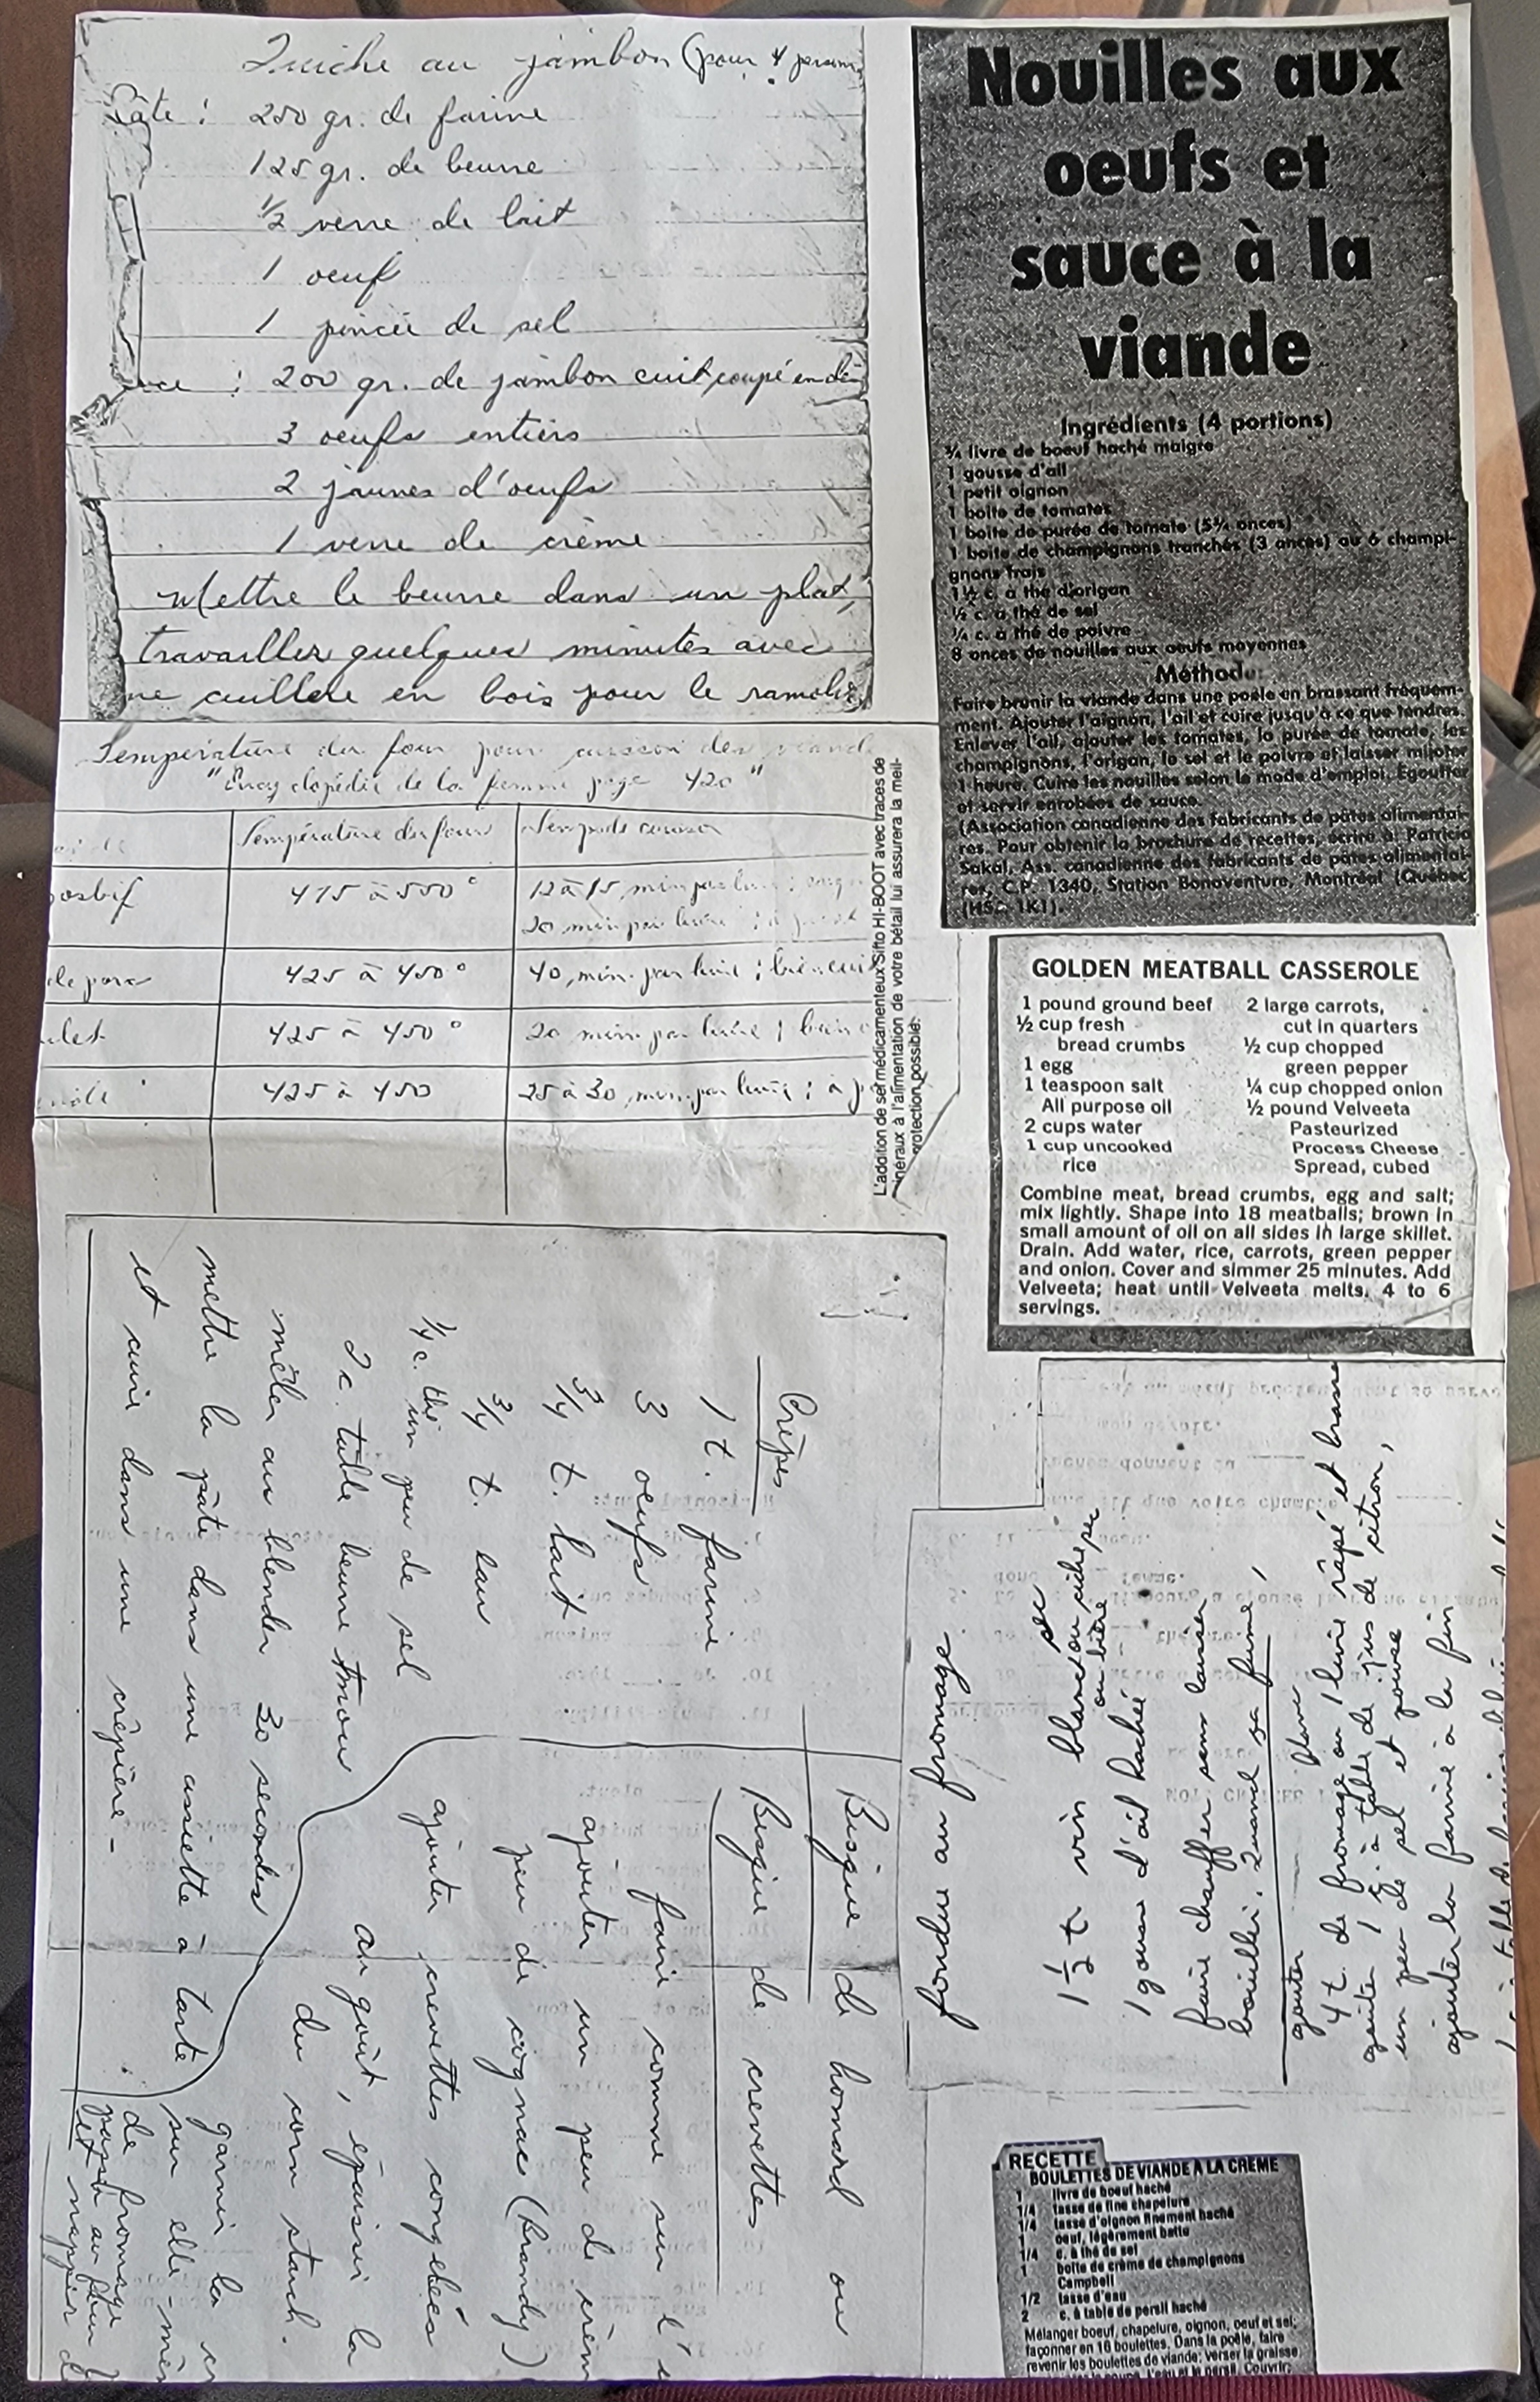 Quiche au jambon (pour 4
Pâte : 250 gr. de farine
125 gr. de beurre
1/2 verre de lait
1 oeuf
1 pincée de sel
: 200 gr. de jambon cuit coupé en
3 oeufs entiers
2 jaunes d'oeufs
1 verre de crème
Mettre le beurre dans un plat,
travailler quelques minutes avec
ne cuillère en bois pour le ramolir
Température du four pour cuisson des viand
"Encyclopédie de la femme page 420"
Température du four
Temps de cuisson
osbif
475 à 500°
12 à 15 min par livre ;
20 min par livre ; à
de porc
425 à 450°
40 min. par livre ; bien cuit
ulet
425 à 450°
20 min par livre ; bien
425 à 450
25 à 30 min. par livre ; à p
L'addition de sel médicamenteux Sifto HI-BOOT avec traces de
inéraux à l'alimentation de votre bétail lui assurera la meil-
protection possible.
Nouilles aux
oeufs et
sauce à la
viande
Ingrédients (4 portions)
¾ livre de boeuf haché maigre
1 gousse d'ail
1 petit oignon
1 boite de tomates
1 boite de purée de tomate (5½ onces)
1 boite de champignons tranchés (3 onces) ou 6 champi-
gnons frais
1½ c. à thé d'origan
½ c. à thé de sel
¼ c. à thé de poivre
8 onces de nouilles aux oeufs moyennes
Méthode:
Faire brunir la viande dans une poêle en brassant fréquem-
ment. Ajouter l'oignon, l'ail et cuire jusqu'à ce que tendres.
Enlever l'ail, ajouter les tomates, la purée de tomate, les
champignons, l'origan, le sel et le poivre et laisser mijoter
1 heure. Cuire les nouilles selon le mode d'emploi. Egoutter
et servir enrobées de sauce.
(Association canadienne des fabricants de pâtes alimentai-
res. Pour obtenir la brochure de recettes, écrire à: Patricia
Sakal, Ass. canadienne des fabricants de pâtes alimentai-
res, C.P. 1340, Station Bonaventure, Montréal (Québec)
(H5A 1K1).
GOLDEN MEATBALL CASSEROLE
1 pound ground beef
½ cup fresh
bread crumbs
1 egg
1 teaspoon salt
All purpose oil
2 cups water
1 cup uncooked
rice
2 large carrots,
cut in quarters
½ cup chopped
green pepper
¼ cup chopped onion
½ pound Velveeta
Pasteurized
Process Cheese
Spread, cubed
Combine meat, bread crumbs, egg and salt;
mix lightly. Shape into 18 meatballs; brown in
small amount of oil on all sides in large skillet.
Drain. Add water, rice, carrots, green pepper
and onion. Cover and simmer 25 minutes. Add
Velveeta; heat until Velveeta melts. 4 to 6
servings.
Crêpes
1 t. farine
3 oeufs
3/4 t. lait
3/4 t. eau
1/4 c. thé un peu de sel
2 c. table beurre mou
mêler au blender 30 secondes
mettre la pâte dans une assiette à tarte
et cuire dans une crêpière -
Bisque de homard ou
Bisque de crevettes
faire comme sur l'
ajouter un peu de crèm
peu de cognac (Brandy)
ajouter crevettes congelées
au goût, épaissir la
du corn starch.
garnir la cr
sur elle-mêm
de fromage
passer au four
et napper d
fondue au fromage
1 1/2 t vin blanc sec ou cidre sec
ou bière
1 gousse d'ail haché
faire chauffer sans laisser
bouillir. Quand ça fume,
ajouter
4 t. de fromage ou 1 livre râpé et brasse
ajouter 1 c. à table de jus de citron,
un peu de sel et poivre
ajouter la farine à la fin
RECETTE
BOULETTES DE VIANDE À LA CRÈME
1 livre de boeuf haché
1/4 tasse de fine chapelure
1/4 tasse d'oignon finement haché
1 oeuf, légèrement battu
1/4 c. à thé de sel
1 boîte de crème de champignons
Campbell
1/2 tasse d'eau
2 c. à table de persil haché
Mélanger boeuf, chapelure, oignon, oeuf et sel;
façonner en 16 boulettes. Dans la poêle, faire
revenir les boulettes de viande; verser la graisse.
la soupe, l'eau et le persil. Couvrir;